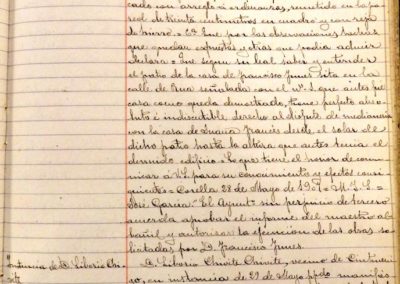 cado con arreglo á ordenanzas, remitido en la pa-
red de treinta centímetros en cuadro y con reja
de hierro. = 6ª Que por las observaciones hechas
que quedan expuestas, y otras que podia aducir
declara = que segun su leal saber y entender
el patio de la casa de Francisco Ymes sita en la
calle de Rua señalada con el nº. 1, que antes fué
casa como queda demostrado, tiene perfecto abso-
luto é indiscutible derecho al disfrute de medianeria
con la casa de Francés desde el solar del
dicho patio hasta la altura que antes tenia el
derruido edificio. = Lo que tiene el honor de comu-
nicar á V.S. para su conocimiento y efectos consi-
guientes = Corella 28 de Mayo de 1907 = M. G. L. =
José Garcia. = El Ayuntº sin perjuicio de tercero
acuerda aprobar el informe del maestro al-
bañil y autorizar la ejecucion de las obras so-
licitadas por D. Francisco Ymes.
Instancia de D. Liborio
D. Liborio Chivite, vecino de Cintrue-
go, en instancia de 29 de Mayo ppdo. manifies-